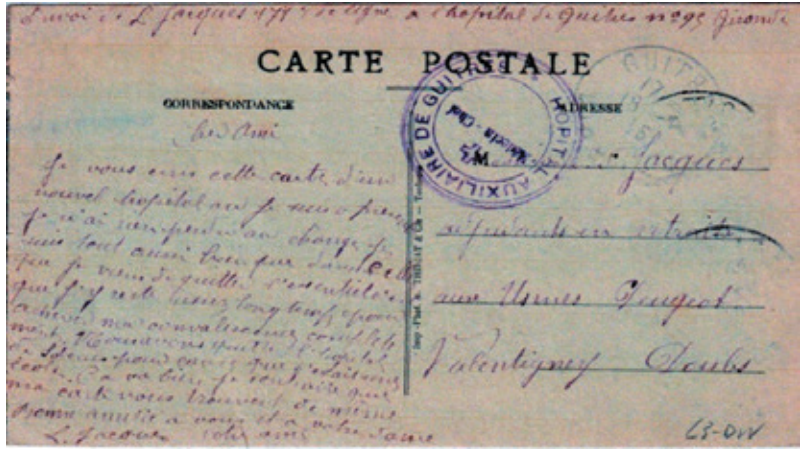 Envoi de L Jacques 171e de ligne a l'hopital de Guitres n° 95 Gironde
CARTE POSTALE
CORRESPONDANCE
ADRESSE
HOPITAL AUXILIAIRE DE GUITRES
Médecin-Chef
GUITRES
17
15
M
Cher Ami
Je vous envoi cette carte d'un
nouvel hopital ou je suis a présent
je n'ai rien perdu au change je
suis tout aussi bien que dans celui
que je viens de quitter l'essentiel c'est
que j'y reste assez longtemps pour
achever ma convalescence complete
ment. Nous avons quitté l'hopital
de pour cause que c'était une
école. Ca va bien je souhaite que
ma carte vous trouvent de même
Bonne amitié a vous et a votre dame
L. Jacques votre ami
Jacques
en retraite
aux Usines Peugeot
Valentigney Doubs
Imp.-Phot. A. & Cie - Toulouse
L3-DW